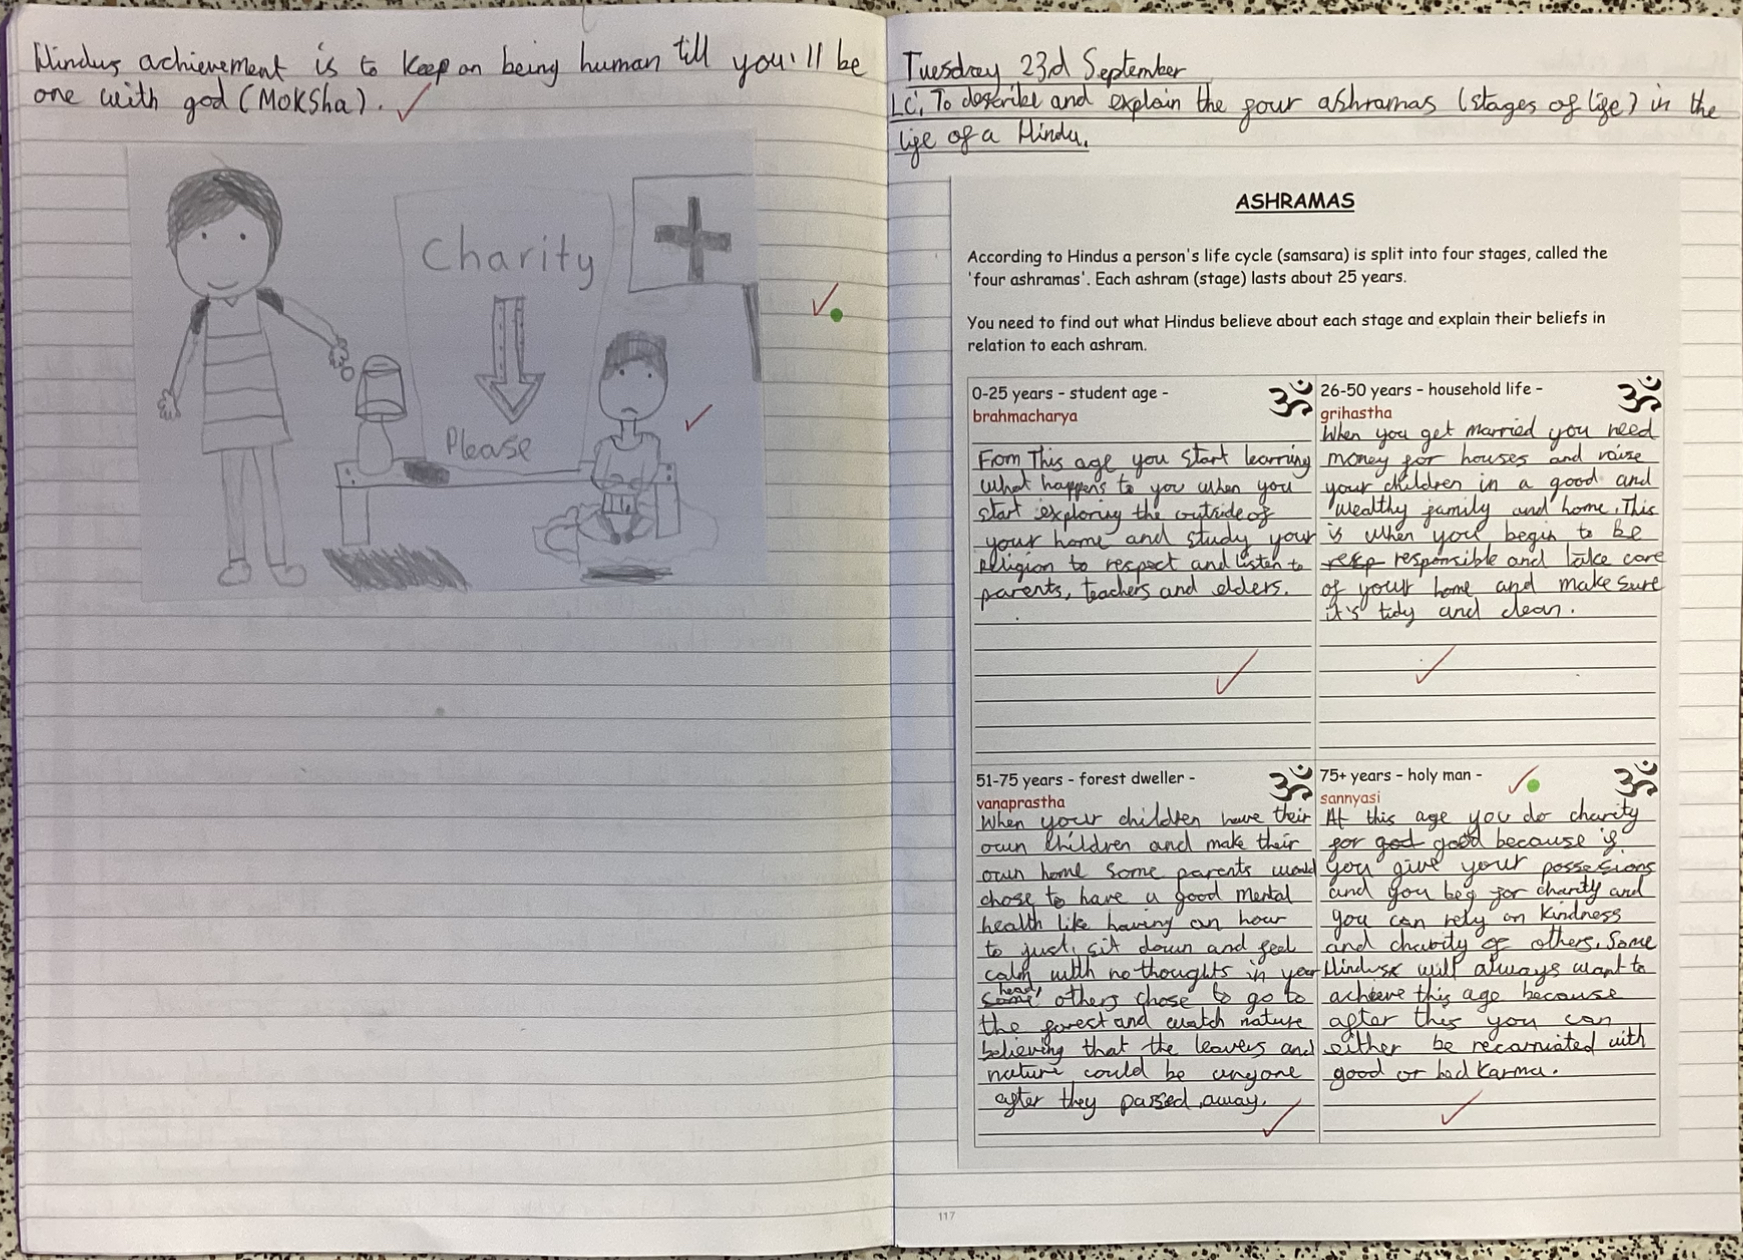 Hindus achievement is to keep on being human till you'll be
one with god (Moksha).
Charity
Please
Tuesday 23rd September
LC; To describe and explain the four ashramas (stages of life) in the
life of a Hindu.
ASHRAMAS
According to Hindus a person's life cycle (samsara) is split into four stages, called the
'four ashramas'. Each ashram (stage) lasts about 25 years.
You need to find out what Hindus believe about each stage and explain their beliefs in
relation to each ashram.
0-25 years - student age -
brahmacharya
From This age you start learning
what happens to you when you
start exploring the outside of
your home and study your
religion to respect and listen to
parents, teachers and elders.
26-50 years - household life -
grihastha
When you get married you need
money for houses and raise
your children in a good and
wealthy family and home. This
is when you begin to be
resp responsible and take care
of your home and make sure
it's tidy and clean.
51-75 years - forest dweller -
vanaprastha
When your children have their
own children and make their
own home some parents would
chose to have a good mental
health like having an hour
to just sit down and feel
calm with no thoughts in your
head,
some others chose to go to
the forest and watch nature
believing that the leavers and
nature could be anyone
after they passed away.
75+ years - holy man -
sannyasi
At this age you do charity
for god good because if
you give your possessions
and you beg for charity and
you can rely on kindness
and charity of others. Some
Hindus will always want to
achieve this age because
after this you can
either be recarniated with
good or bad Karma.
117